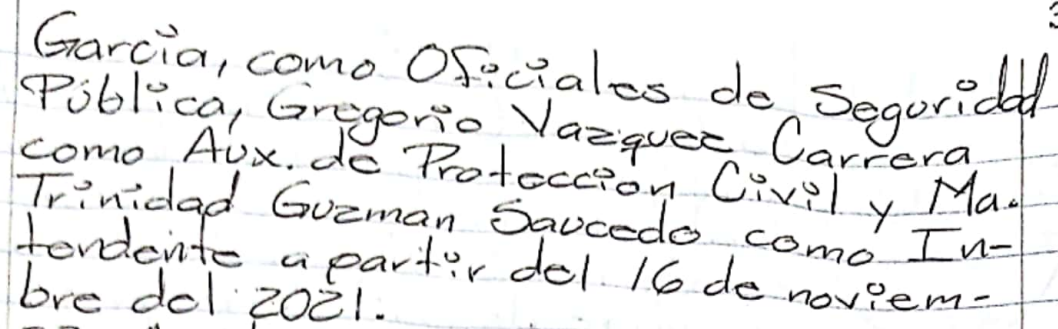 García, como Oficiales de Seguridad
Pública, Gregorio Vazquez Carrera
como Aux. de Protección Civil y Ma.
Trinidad Guzman Saucedo como In-
tendente a partir del 16 de noviem-
bre del 2021.